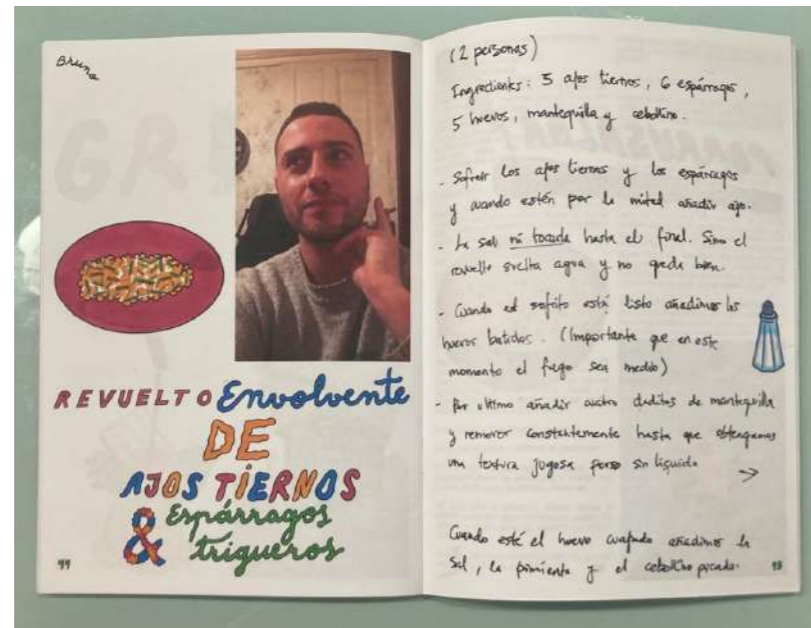 Bruno
REVUELTO Envolvente
DE
AJOS TIERNOS
& Espárragos
trigueros
44
(2 personas)
Ingredientes: 5 ajos tiernos, 6 espárragos,
5 huevos, mantequilla y cebollino.
- Sofreír los ajos tiernos y los espárragos
y cuando estén por la mitad añadir ajo.
- La sal ni tocarla hasta el final. Sino el
revuelto suelta agua y no queda bien.
- Cuando el sofrito está listo añadimos los
huevos batidos. (Importante que en este
momento el fuego sea medio)
- Por último añadir cuatro daditos de mantequilla
y remover constantemente hasta que obtengamos
una textura jugosa pero sin líquido →
Cuando esté el huevo cuajado añadimos la
sal, la pimienta y el cebollino picado.